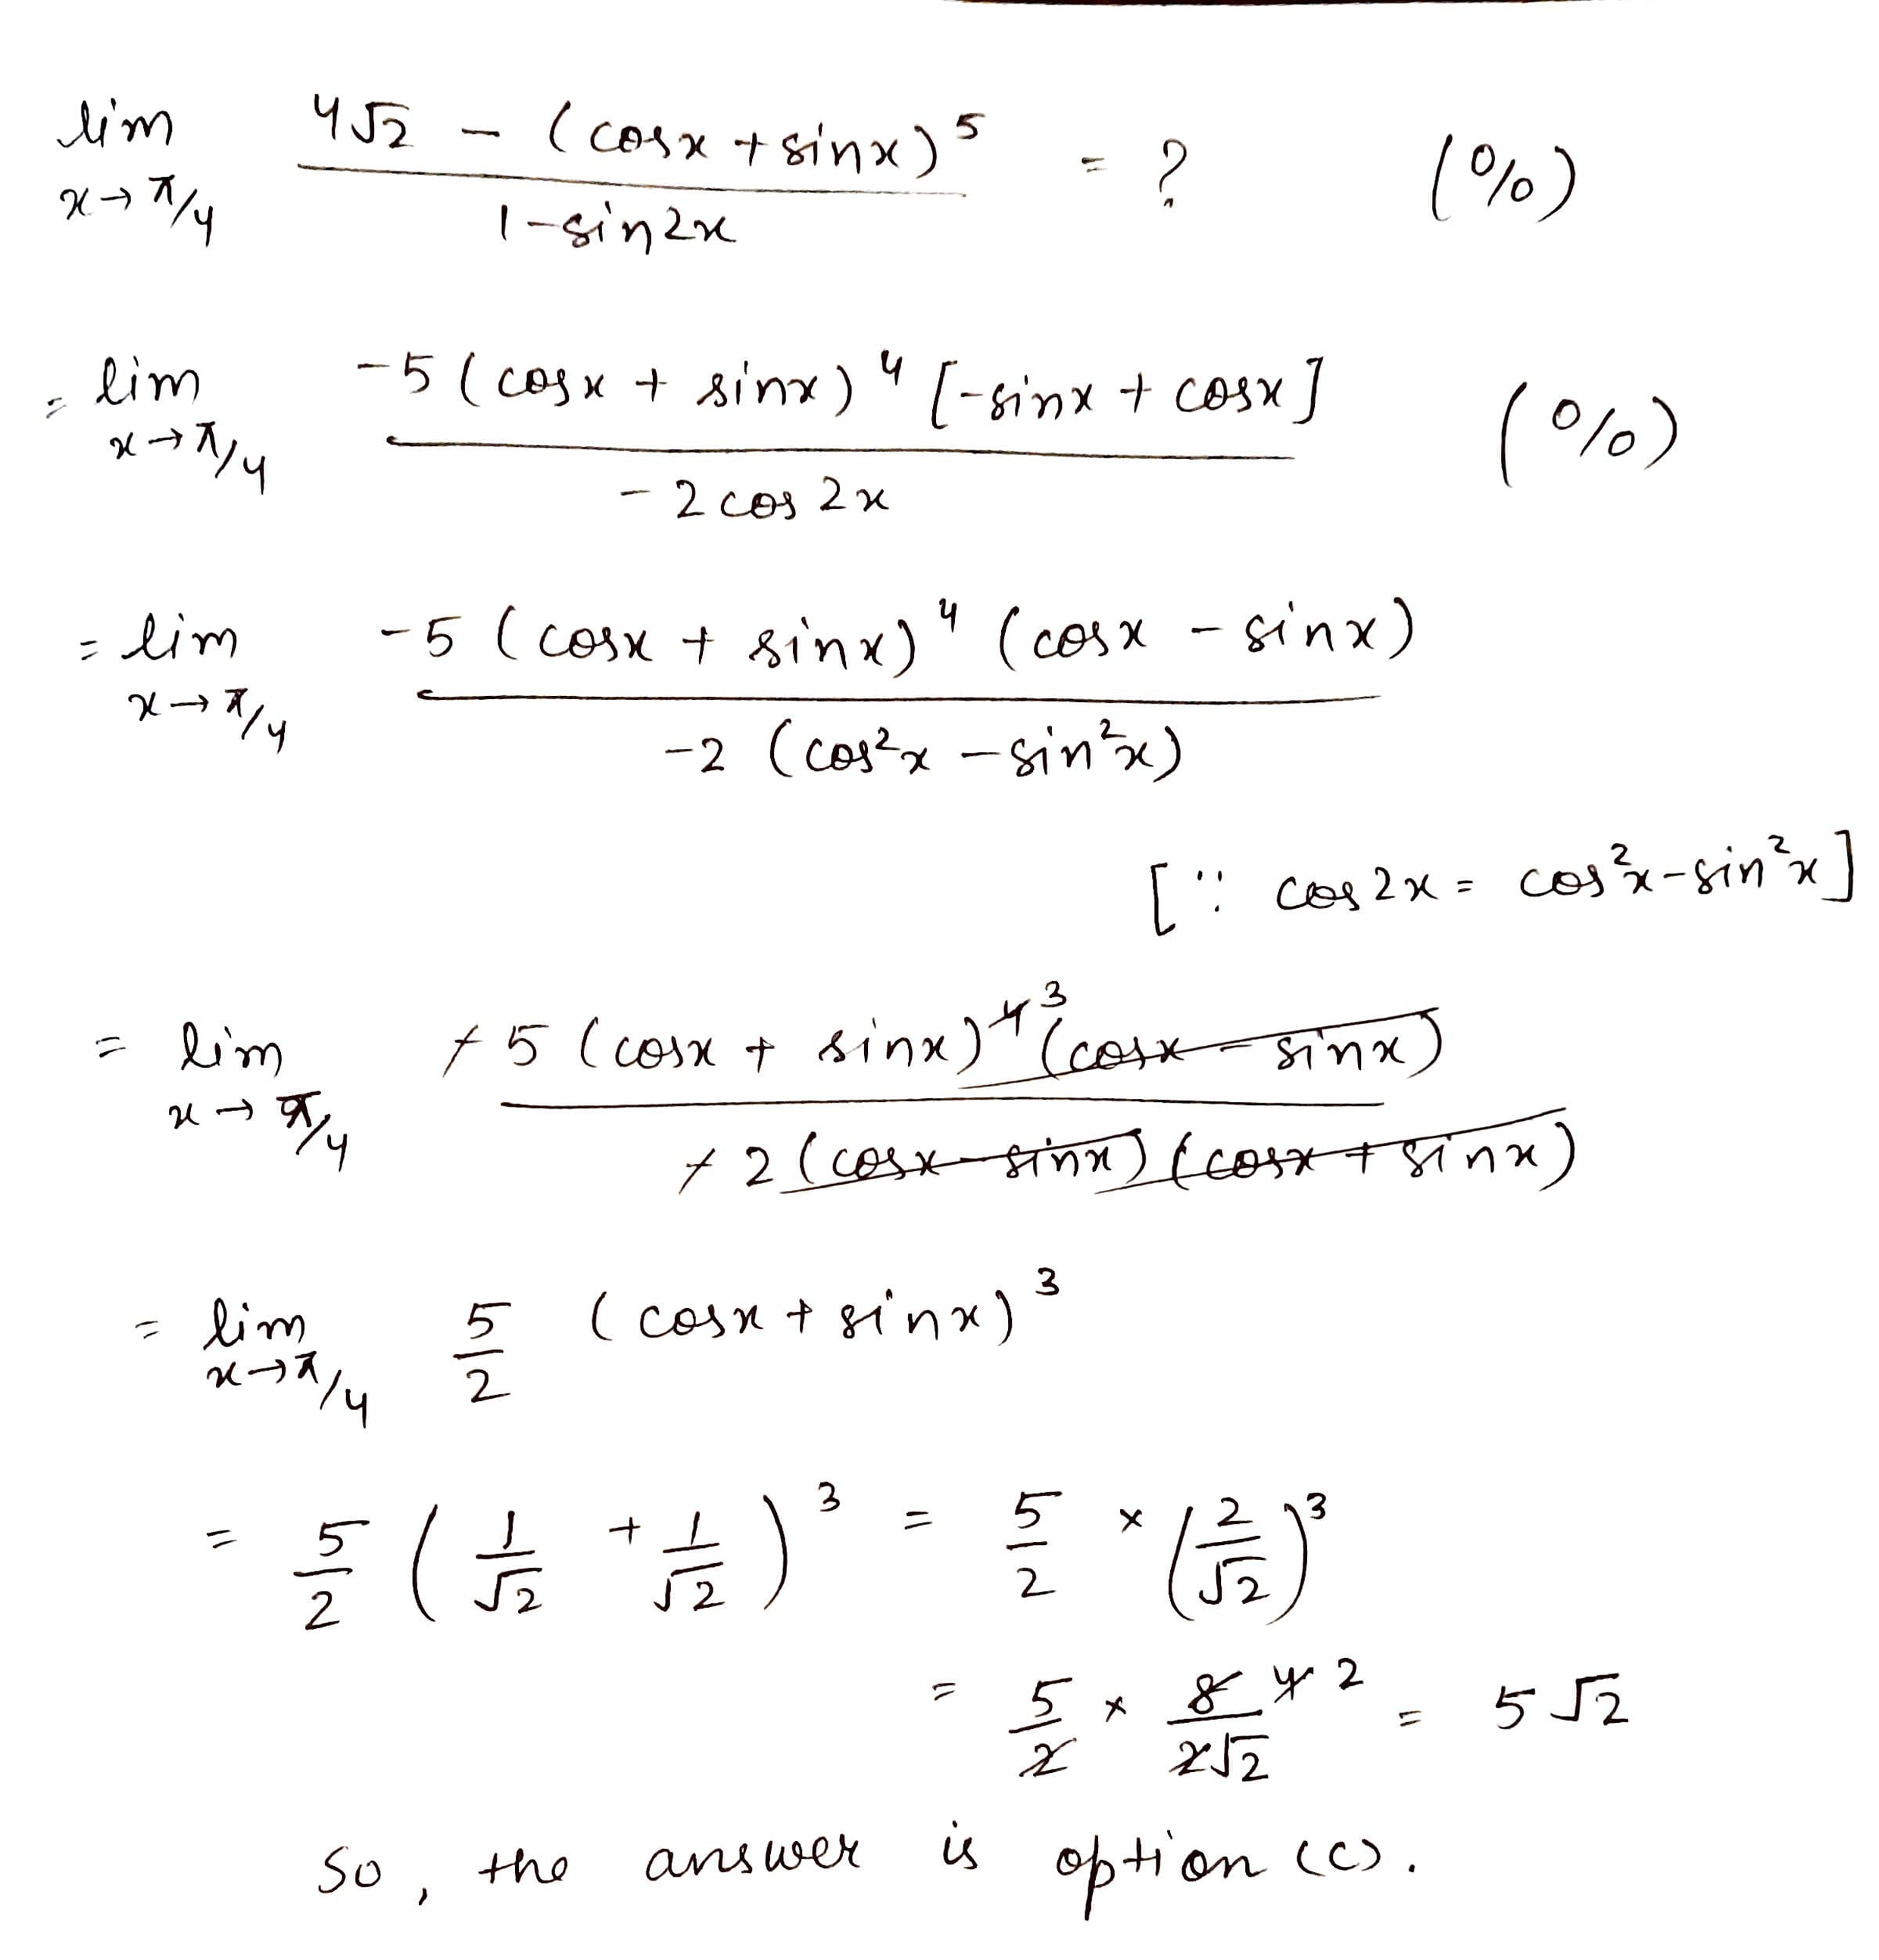 lim x→π/4 (4√2 - (cosx + sinx)^5) / (1 - sin2x) = ? (0/0)
= lim x→π/4 (-5(cosx + sinx)^4 [-sinx + cosx]) / (-2cos2x) (0/0)
= lim x→π/4 (-5(cosx + sinx)^4 (cosx - sinx)) / (-2(cos²x - sin²x))
[∵ cos2x = cos²x - sin²x]
= lim x→π/4 (-5(cosx + sinx)^4 3 (cosx - sinx)) / (-2(cosx - sinx)(cosx + sinx))
= lim x→π/4 5/2 (cosx + sinx)^3
= 5/2 (1/√2 + 1/√2)^3 = 5/2 × (2/√2)^3
= 5/2 × 8 4 2 / 2√2 = 5√2
so, the answer is option (c).